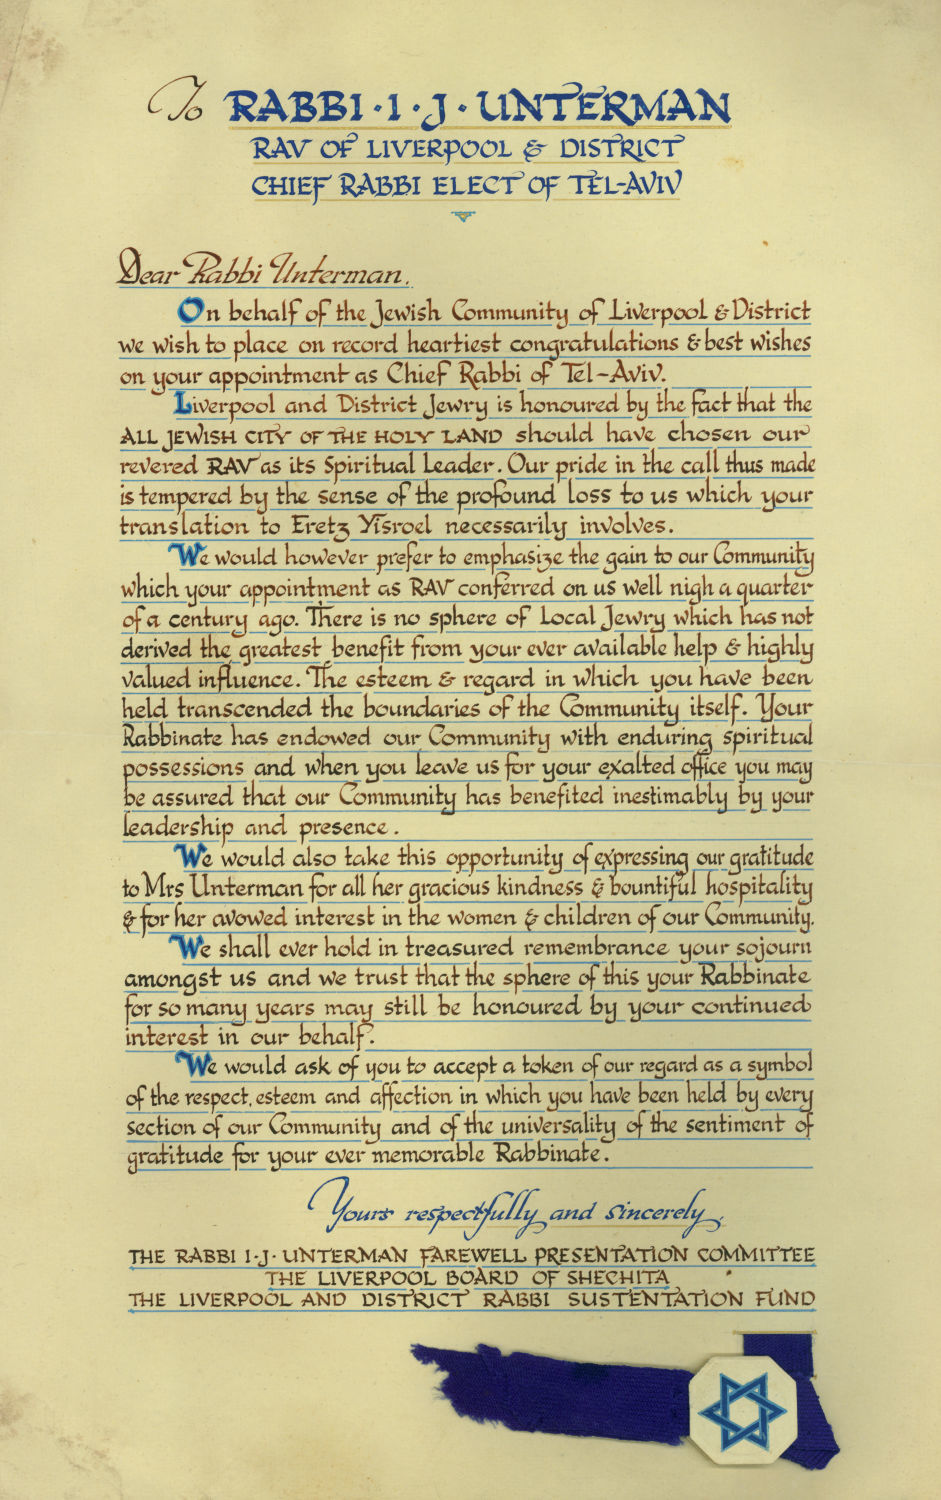 To RABBI · I · J · UNTERMAN
RAV OF LIVERPOOL & DISTRICT
CHIEF RABBI ELECT OF TEL-AVIV
Dear Rabbi Unterman.
On behalf of the Jewish Community of Liverpool & District
we wish to place on record heartiest congratulations & best wishes
on your appointment as Chief Rabbi of Tel-Aviv.
Liverpool and District Jewry is honoured by the fact that the
ALL JEWISH CITY OF THE HOLY LAND should have chosen our
revered RAV as its Spiritual Leader. Our pride in the call thus made
is tempered by the sense of the profound loss to us which your
translation to Eretz Yisroel necessarily involves.
We would however prefer to emphasize the gain to our Community
which your appointment as RAV conferred on us well nigh a quarter
of a century ago. There is no sphere of Local Jewry which has not
derived the greatest benefit from your ever available help & highly
valued influence. The esteem & regard in which you have been
held transcended the boundaries of the Community itself. Your
Rabbinate has endowed our Community with enduring spiritual
possessions and when you leave us for your exalted office you may
be assured that our Community has benefited inestimably by your
leadership and presence.
We would also take this opportunity of expressing our gratitude
to Mrs Unterman for all her gracious kindness & bountiful hospitality
& for her avowed interest in the women & children of our Community.
We shall ever hold in treasured remembrance your sojourn
amongst us and we trust that the sphere of this your Rabbinate
for so many years may still be honoured by your continued
interest in our behalf.
We would ask of you to accept a token of our regard as a symbol
of the respect, esteem and affection in which you have been held by every
section of our Community and of the universality of the sentiment of
gratitude for your ever memorable Rabbinate.
Yours respectfully and sincerely,
THE RABBI I · J · UNTERMAN FAREWELL PRESENTATION COMMITTEE
THE LIVERPOOL BOARD OF SHECHITA
THE LIVERPOOL AND DISTRICT RABBI SUSTENTATION FUND